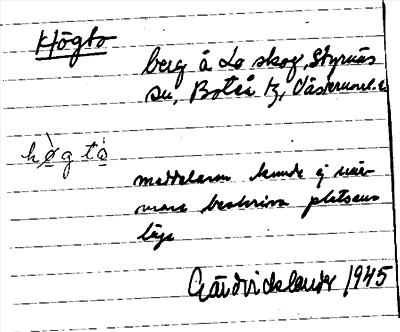 Högto
berg å Lo skog, Styrnäs
sn, Boteå tg, Västernorrl. l.
högtò
meddelaren kunde ej när-
mare beskriva platsens
läge
Gärdvidslander 1945